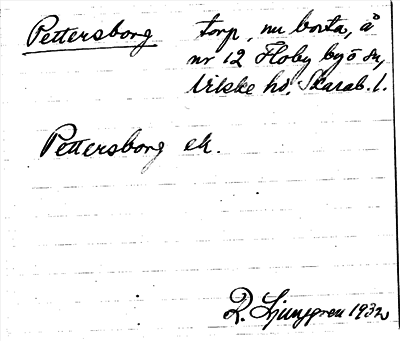 Pettersborg torp, nu borta, å
nr 12 Floby by ö sn,
Vilske hd, Skarab. l.
Pettersborg ek.
R. Ljunggren 1932